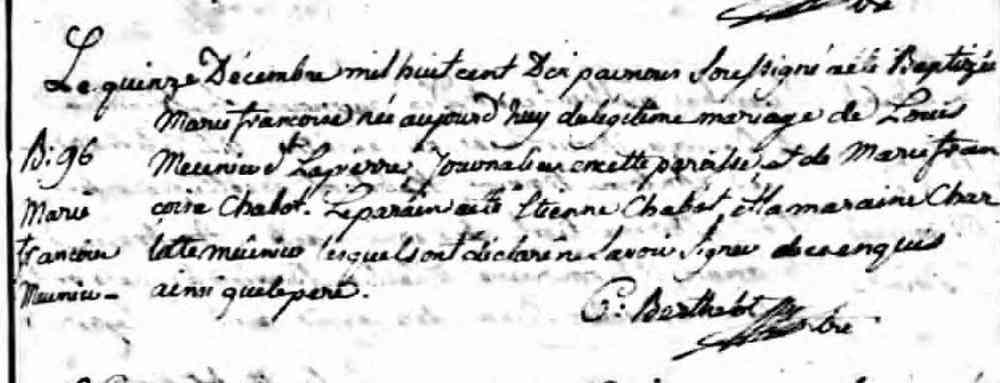 Le quinze Décembre mil huit cent Dix par nous Soussigné a été Baptizée
Marie françoise née aujourd'huy du légitime mariage de Louis
B: 96
Meunier dt Lapierre Journalier en cette paroisse et de Marie fran
Marie
çoise Chabot. Le parain a été Etienne Chabot, et la maraine Char
françoise
lotte meûnier lesquels ont déclaré ne Savoir Signer de ce enquis
Meunier -
ainsi que le pere.
C: Berthelot ptre